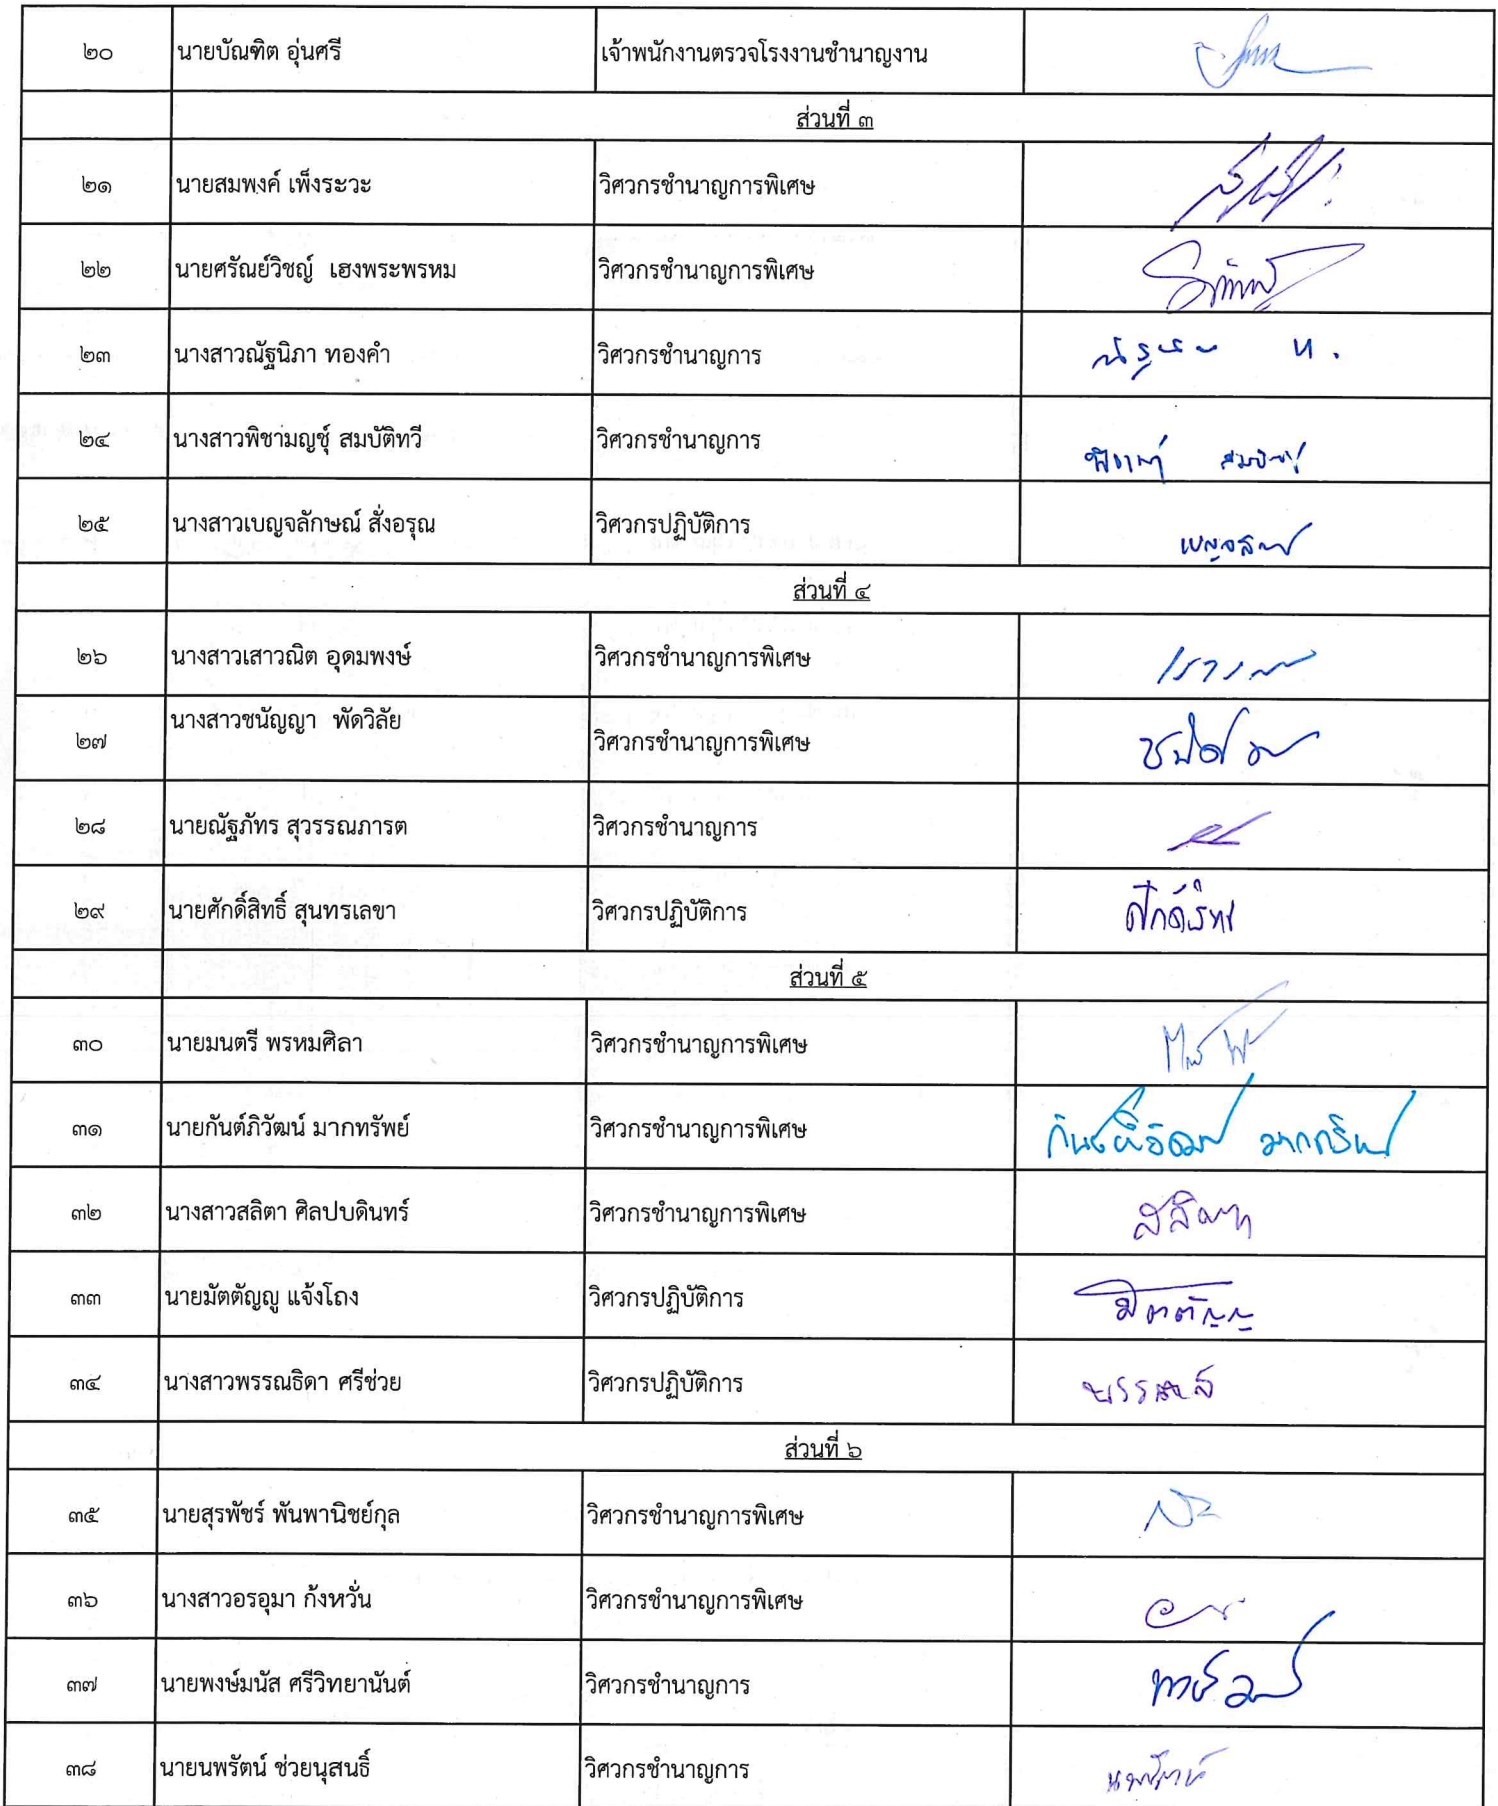 ๒๐ นายบัณฑิต อุ่นศรี เจ้าพนักงานตรวจโรงงานชำนาญงาน
ส่วนที่ ๓
๒๑ นายสมพงค์ เพ็งระวะ วิศวกรชำนาญการพิเศษ
๒๒ นายศรัณย์วิชญ์ เฮงพระพรหม วิศวกรชำนาญการพิเศษ
๒๓ นางสาวณัฐนิภา ทองคำ วิศวกรชำนาญการ
๒๔ นางสาวพิชามญชุ์ สมบัติทวี วิศวกรชำนาญการ
๒๕ นางสาวเบญจลักษณ์ สั่งอรุณ วิศวกรปฏิบัติการ
ส่วนที่ ๔
๒๖ นางสาวเสาวณิต อุดมพงษ์ วิศวกรชำนาญการพิเศษ
๒๗ นางสาวชนัญญา พัดวิลัย วิศวกรชำนาญการพิเศษ
๒๘ นายณัฐภัทร สุวรรณภารต วิศวกรชำนาญการ
๒๙ นายศักดิ์สิทธิ์ สุนทรเลขา วิศวกรปฏิบัติการ
ส่วนที่ ๕
๓๐ นายมนตรี พรหมศิลา วิศวกรชำนาญการพิเศษ
๓๑ นายกันต์ภิวัฒน์ มากทรัพย์ วิศวกรชำนาญการพิเศษ
๓๒ นางสาวสลิตา ศิลปบดินทร์ วิศวกรชำนาญการพิเศษ
๓๓ นายมัตตัญญู แจ้งโถง วิศวกรปฏิบัติการ
๓๔ นางสาวพรรณธิดา ศรีช่วย วิศวกรปฏิบัติการ
ส่วนที่ ๖
๓๕ นายสุรพัชร์ พันพานิชย์กุล วิศวกรชำนาญการพิเศษ
๓๖ นางสาวอรอุมา ก้งหวั่น วิศวกรชำนาญการพิเศษ
๓๗ นายพงษ์มนัส ศรีวิทยานันต์ วิศวกรชำนาญการ
๓๘ นายนพรัตน์ ช่วยนุสนธิ์ วิศวกรชำนาญการ